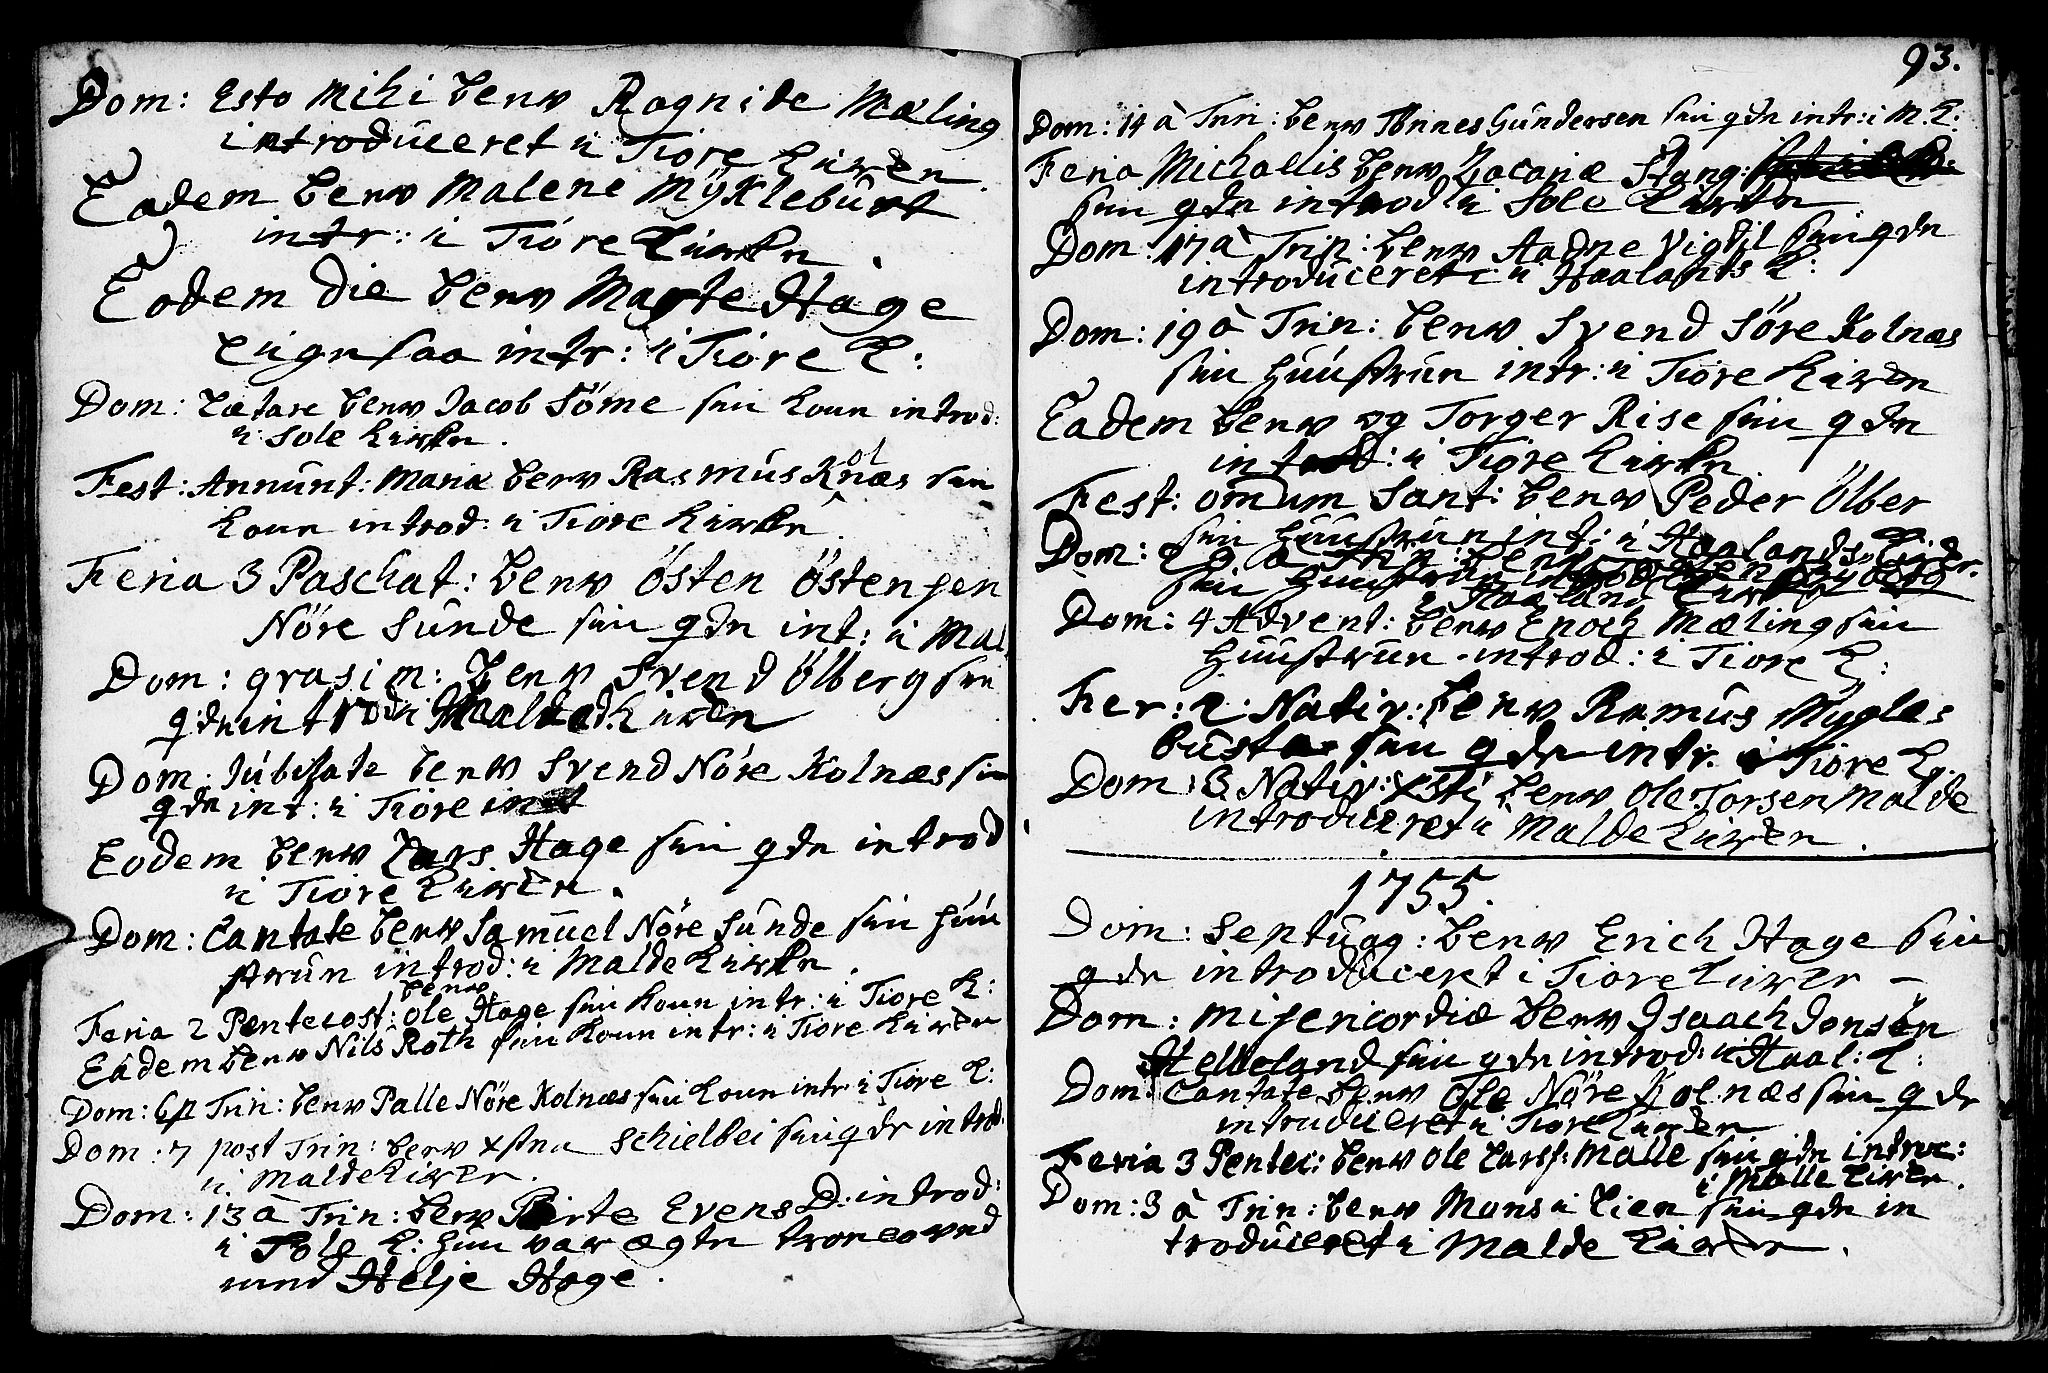 Dom: Esto Mihi blew Ragnide Mæling
introduceret i Tiore Kirken.
Eadem blew Malene Myklebust
intr: i Tiore Kirken.
Eodem Die blew Marte Hage
ligesaa intr: i Tiore K:
Dom: Lætare blew Jacob Söme sin Kone introd:
i Sole Kirken.
Fest: Annunt: Mariæ blew Rasmus Kolnæs sin
Kone introd: i Tiore Kirken.
Feria 3 Paschat: blew Östen Östensen
Nöre Sunde sin qde int: i Mal
Dom: qvasim: blew Svend Ölberg sin
qde introd: i Kirken
Dom: Jubilate blew Svend Nöre Kolnæs sin
qde int: i Tiore
Eodem blew Lars Hage sin qde introd
i Tiore Kirken.
Dom: Cantate blew Samuel Nöre Sunde sin Huu
strue introd: i Malde Kirken.
Feria 2 Pentecost: blew Ole Hage sin Kone intr: i Tiore K:
Eadem blew Nils Roth sin Kone intr: i Tiore Kirken
Dom: 6 p Trin: blew Palle Nöre Kolnæs sin Kone intr: i Tiore K:
Dom: 7 post Trin: blew Xstna Schielbei sin qde introd:
i Malde Kirken.
Dom: 13 à Trin: blew Birte Evens D: introd:
i Sole K: hun var ægte troloved
med Helje Hage.
93.
Dom: 14 à Trin: blew Tönnes Gundersen sin qde intr: i M. K:
Feria Michaelis blew Zacariæ Stang:
sin qde introd i Sole Kirken
Dom: 17 à Trin: blew Aadne Vigdil sin qde
introduceret i Haalands K:
Dom: 19 à Trin: blew Svend Söre Kolnæs
sin Huustrue intr: i Tiore Kirken
Eadem blew og Torger Rise sin qde
introd: i Tiore Kirken.
Fest: omium Sant: blew Peder Ölber
sin Huustrue int: i Haalands Kirk.
Dom: 20 à Trin: blew
sin Huustrue introd
i Haaland Kirken
Dom: 4 Advent: blew Enoch Mæling sin
Huustrue introd: i Tiore K:
Fer: 2 Nativ: blew Ramus Mygles
buste sin qde intr. i Tiore K.
Dom: 3 Nativ: Xsti blew Ole Torsen Malde
introduceret i Malde Kirken.
1755.
Dom: Septuag: blew Erich Hage sin
qde introduceret i Tiore Kirken –
Dom: Misericordiæ blew Isaach Jonsen
Helleland sin qde introd: i Haal: K:
Dom: Cantate blew Ole Nöre Kolnæs sin qde
introduceret i Tiore Kirken
Feria 3 Pentec: blew Ole Larss: Malle sin qde introc:
i Malle Kirken.
Dom: 3 à Trin: blew Mons i Lien sin qde in
troduceret i Malde Kirken.